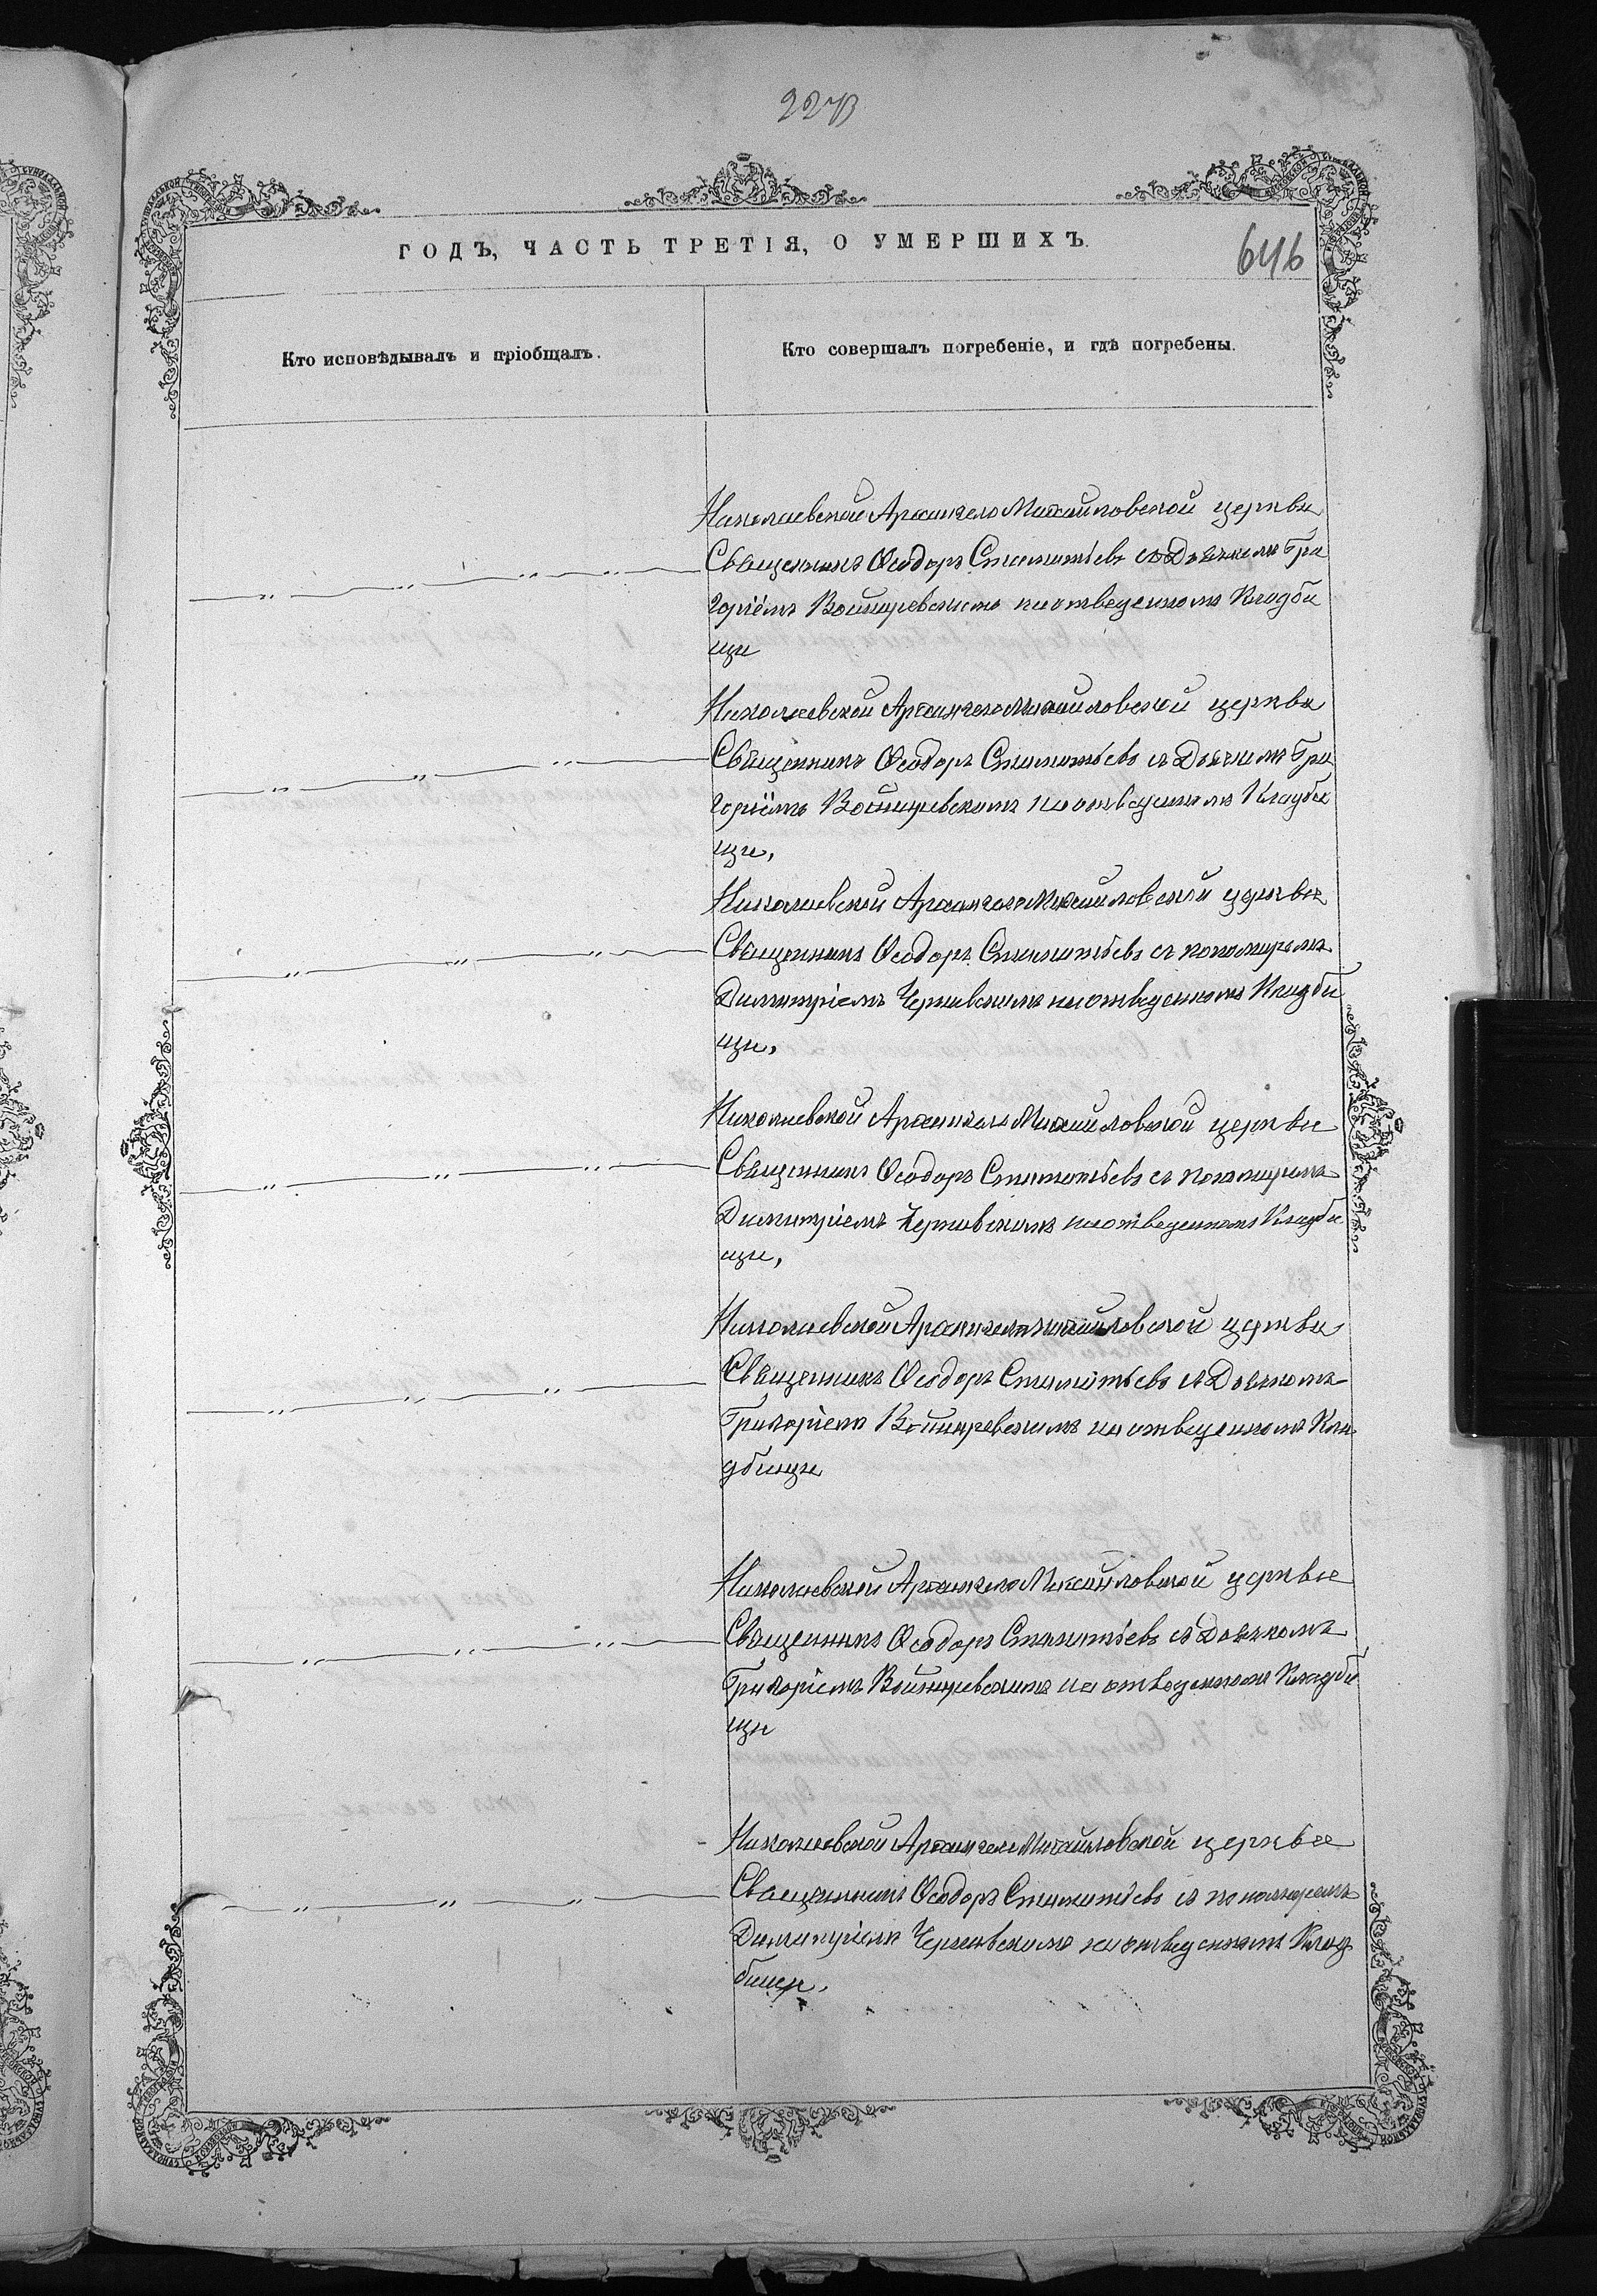 646
ГОДЪ, ЧАСТЬ ТРЕТІЯ, О УМЕРШИХЪ.
Кто исповѣдывалъ и пріобщалъ.
Кто совершалъ погребеніе, и гдѣ погребены.
Николаевской Архангело Михайловской церкви
Священникъ Ѳеодоръ съ Дьячкомъ Гри
горіемъ на отведенномъ Кладби
щи
Николаевской Архангело Михайловской церкви
Священникъ Ѳеодоръ съ Дьячкомъ Гри
горіемъ на отведенномъ Кладби
щи,
Николаевской Архангело Михайловской церкви
Священникъ Ѳеодоръ съ пономаремъ
Димитріемъ Чернявскимъ на отведенномъ Кладби
щи,
Николаевской Архангело Михайловской церкви
Священникъ Ѳеодоръ съ пономаремъ
Димитріемъ Чернявскимъ на отведенномъ Кладби
щи,
Николаевской Архангело Михайловской церкви
Священникъ Ѳеодоръ съ Дьячкомъ
Григоріемъ на отведенномъ Кла
дбищи
Николаевской Архангело Михайловской церкви
Священникъ Ѳеодоръ съ Дьячкомъ
Григоріемъ на отведенномъ Кладби
щи
Николаевской Архангело Михайловской церкви
Священникъ Ѳеодоръ съ пономаремъ
Димитріемъ Чернявскимъ на отведенномъ Клад
бищи.